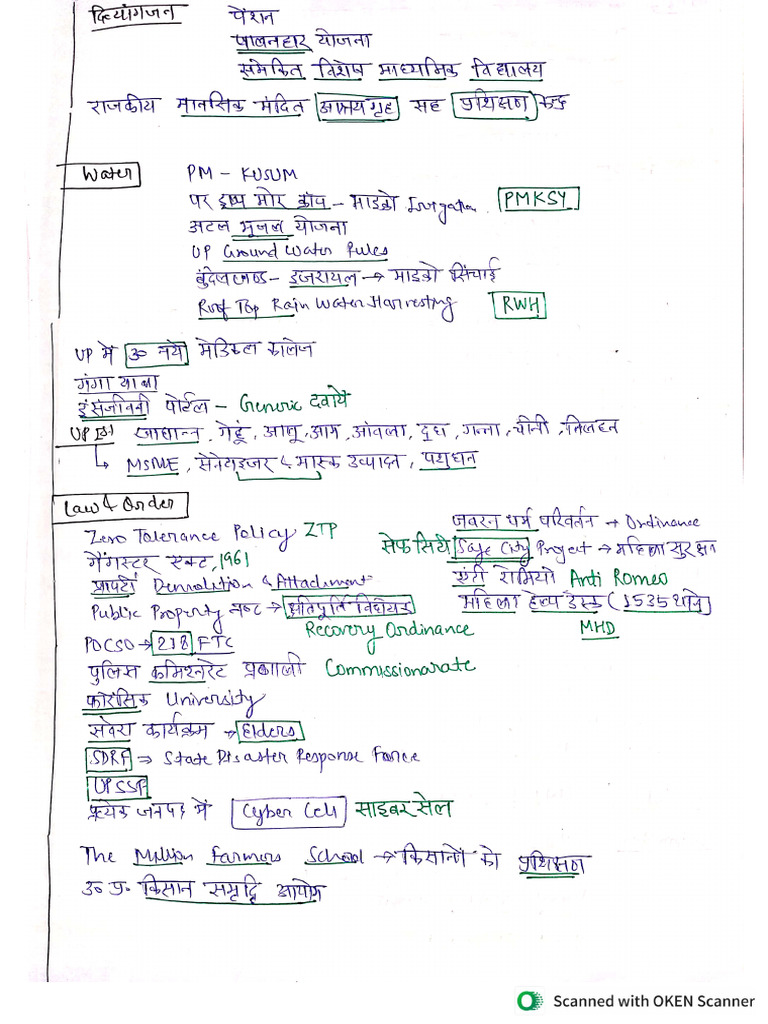 दिव्यांगजन पेंशन
पालनहार योजना
समेकित विशेष माध्यमिक विद्यालय
राजकीय मानसिक मंदित आश्रयगृह सह प्रशिक्षण केन्द्र
Water PM - KUSUM
पर ड्राप मोर क्रॉप - माइक्रो Irrigation. PMKSY
अटल भूजल योजना
UP Ground Water Rules
बुंदेलखण्ड - इजरायल → माइक्रो सिंचाई
Roof Top Rain Water Harvesting RWH
UP में 30 नये मेडिकल कालेज
गंगा यात्रा
इसंजीवनी पोर्टल - Generic दवायें
UP Ist खाद्यान्न, गेहूं, आलू, आम, आंवला, दूध, गन्ना, चीनी, तिलहन
↳ MSME, सेनेटाइजर & मास्क उत्पादन, पशुधन
Law & Order
Zero Tolerance Policy ZTP
जबरन धर्म परिवर्तन → Ordinance
गैंगस्टर एक्ट, 1961
सेफ सिटी Safe City Project → महिला सुरक्षा
प्रापर्टी Demolition & Attachment
एंटी रोमियो Anti Romeo
Public Property नष्ट → क्षतिपूर्ति विधेयक
महिला हेल्प डेस्क (1535 थाने)
Recovery Ordinance
MHD
POCSO → 218 FTC
पुलिस कमिश्नरेट प्रणाली Commissionarate
फोरेंसिक University
सवेरा कार्यक्रम → Elders
SDRF → State Disaster Response Force
UPSSF
प्रत्येक जनपद में Cyber Cell साइबर सेल
The Million Farmers School → किसानों को प्रशिक्षण
उ० प्र० किसान समृद्धि आयोग
Scanned with OKEN Scanner